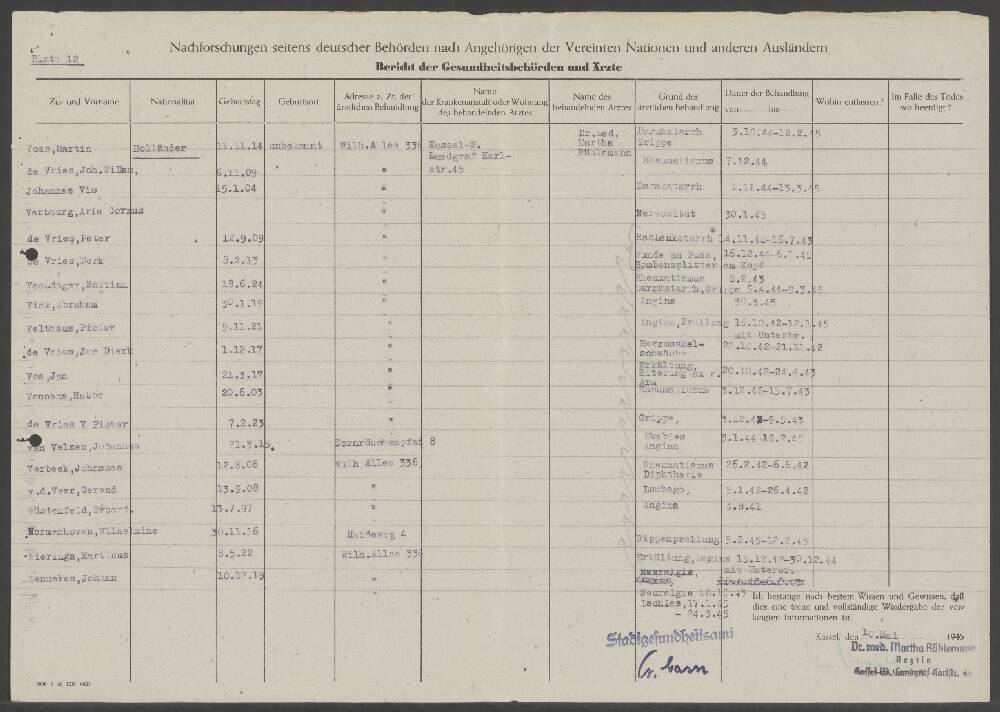 Blatt 12
Nachforschungen seitens deutscher Behörden nach Angehörigen der Vereinten Nationen und anderen Ausländern
Bericht der Gesundheitsbehörden und Ärzte
Zu- und Vorname Nationalität Geburtstag Geburtsort Adresse z. Zt. der ärztlichen Behandlung Name der Krankenanstalt oder Wohnung des behandelnden Arztes Name des behandelnden Arztes Grund der ärztlichen Behandlung Dauer der Behandlung von bis Wohin entlassen? Im Falle des Todes wo beerdigt?
Voss,Martin Holländer 11.11.14 unbekannt Wilh.Allee 336 Kassel-W. Landgraf Karl-str.45 Dr.med. Martha Rühlemann Darmkatarrh Grippe 3.10.44-12.2.45
de Vries,Joh.Willem, 6.11.09 " Rheumatismus 7.12.44
Johannes Vis 15.1.04 " Darmkatarrh 1.11.44-13.3.45
Verbourg,Arie Cornus " Nervosität 30.1.45
de Vries,Peter 12.9.09 " Rachenkatarrh 14.11.42-16.7.43
de Vries,Derk 8.2.13 " Wunde am Fuss, 16.12.44-6.1.45
Bombensplitter am Kopf
18.6.24 " Rheumatismus 8.2.43
5.4.44-9.3.45
Vink,Abraham 30.1.19 " Angina 30.3.45
Velthaus,Pieter 5.11.21 " Angina,Prellung 16.10.42-12.1.45
mit Unterbr.
de Vries,Jan Dierk 1.12.17 " Herzmuskel-schwäche 22.10.42-21.11.42
Vos,Jan 21.3.17 " Erkältung, Eiterung am r. Arm 20.10.42-24.4.43
20.6.03 " Rheumatismus 3.12.42-15.7.43
de Vries V Pieter 7.2.23 " Grippe, 3.12.42-9.5.43
van Velzen,Johannes 21.3.15. Dornröschenpfad 8 Skabies Angina 3.1.44-12.2.45
Verbeek,Johannes 12.8.06 Wilh.Allee 336 Rheumatismus Diphtherie 26.2.42-6.5.42
v.d.Veer,Gerand 13.9.08 " Lumbago, 5.1.42-26.4.42
13.7.97 " Angina 4.8.41
Wormenhoven,Wilhelmina 30.11.16 Heideweg 4 Rippenprellung 5.2.45-12.2.45
Wieringa,Martinus 8.5.22 Wilh.Allee 336 Erkältung,Angina 15.12.42-30.12.44
mit Unterbr.
Wennekes,Johann 10.12.19 "
Neuralgie 18.10.43
Ischias,17.1.45
- 24.3.45
Ich bestätige nach bestem Wissen und Gewissen, daß
dies eine treue und vollständige Wiedergabe der ver-
langten Informationen ist.
Kassel, den 10.Mai 1946
Stadtgesundheitsamt
Dr. med. Martha Rühlemann
Ärztin
Kassel-W., Landgraf-Karlstr. 45